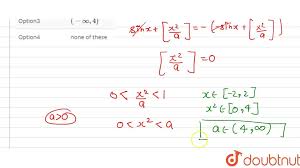 Option3 (-∞,4)
Option4 none of these
sinx + [x²/a] = -(-sinx + [x²/a])
[x²/a] = 0
0 < x²/a < 1
a>0
0 < x² < a
x ∈ [-2,2]
x² ∈ [0,4]
a ∈ (4,∞)
doubtnut